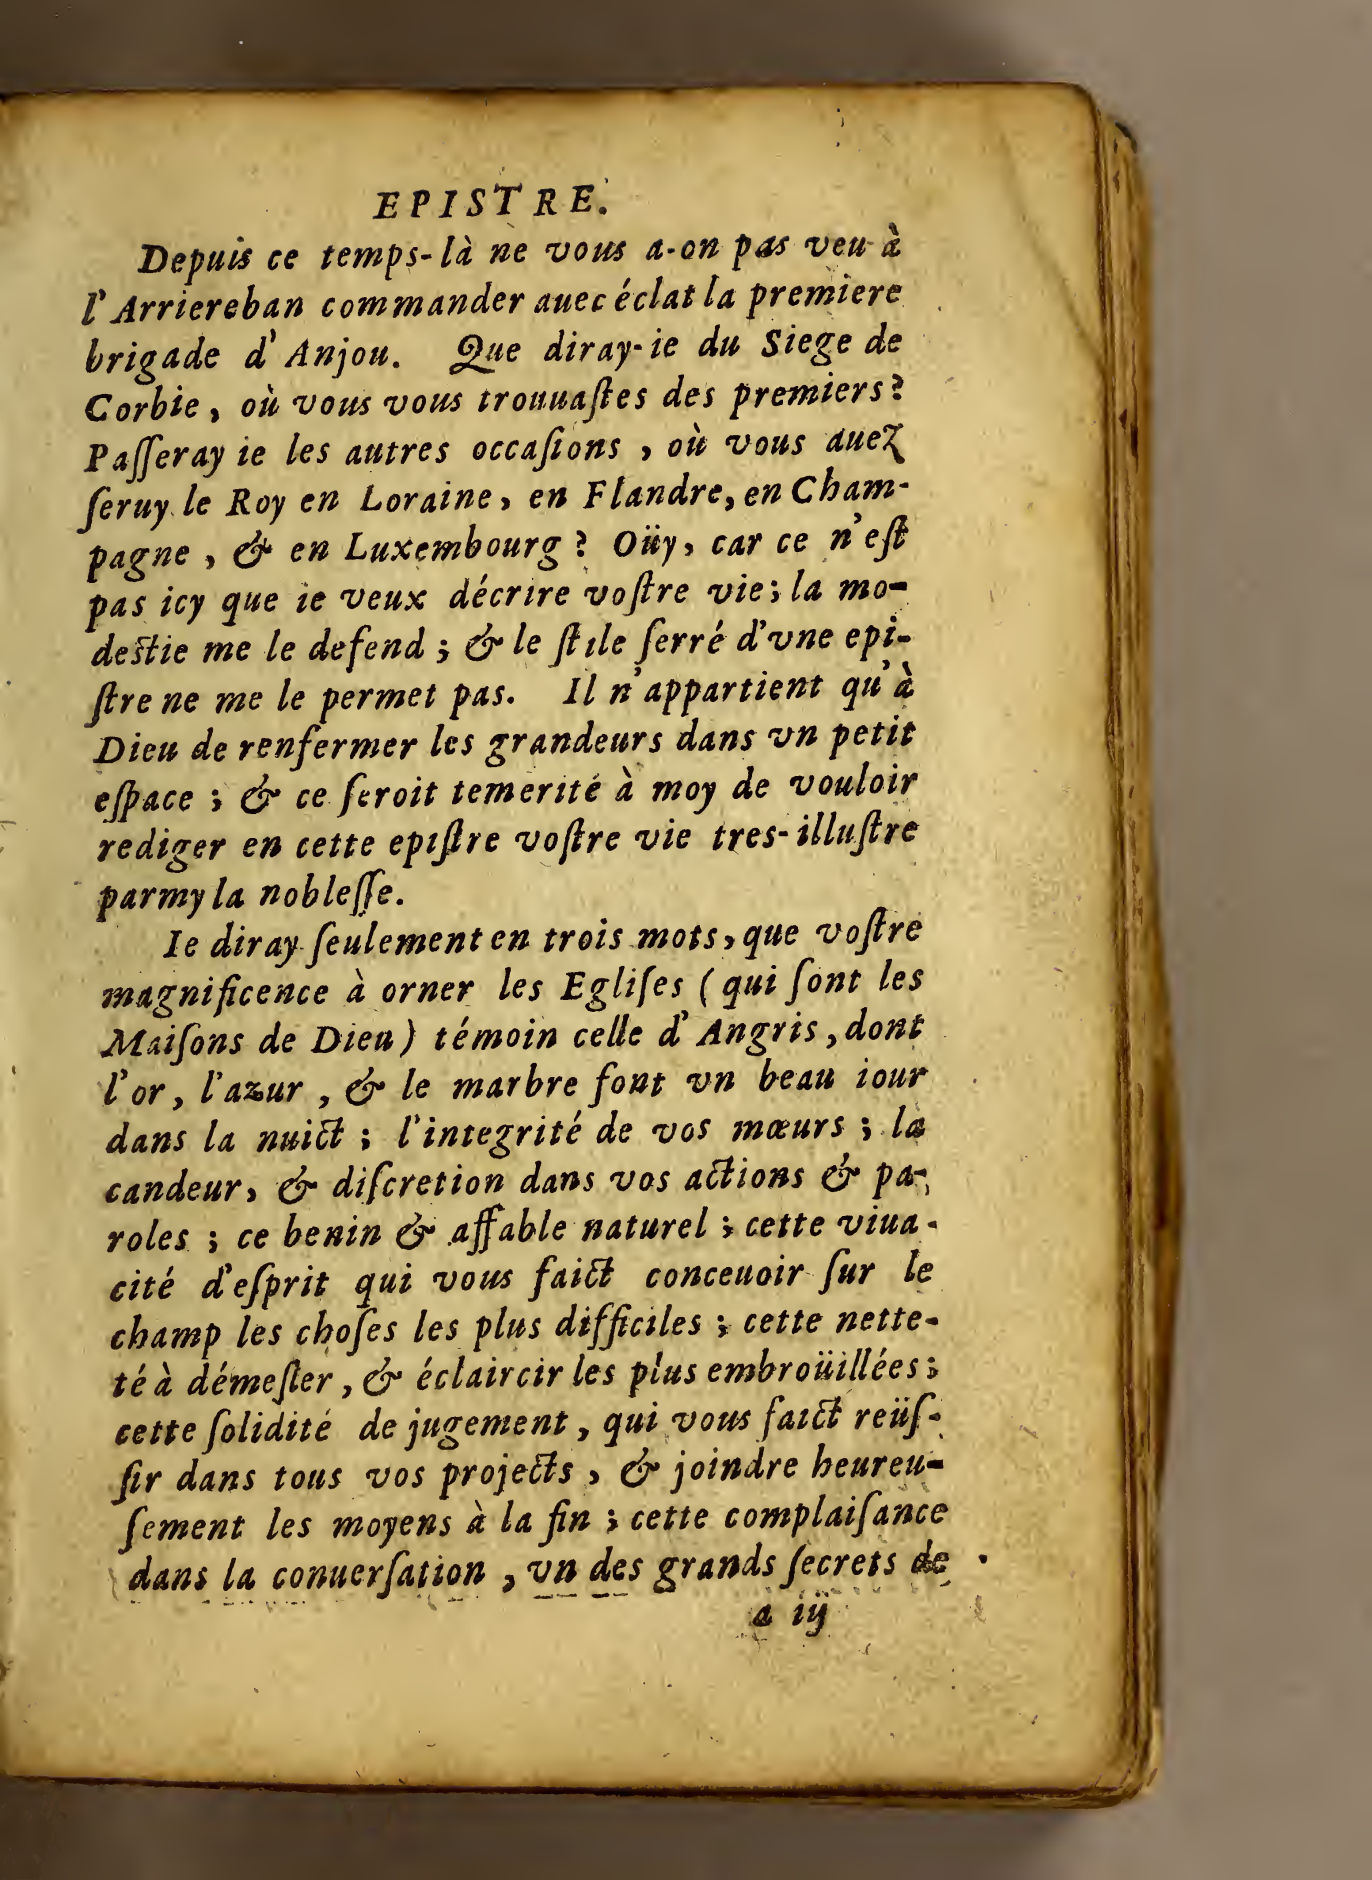 EPISTRE.
Depuis ce temps-là ne vous a-on pas veu à
l'Arriereban commander auec éclat la premiere
brigade d'Anjou. Que diray-ie du Siege de
Corbie, où vous vous trouuaſtes des premiers?
Paſſeray ie les autres occaſions, où vous auez
ſeruy le Roy en Loraine, en Flandre, en Cham-
pagne, & en Luxembourg? Oüy, car ce n'eſt
pas icy que ie veux décrire voſtre vie; la mo-
deſtie me le defend; & le ſtile ſerré d'vne epi-
ſtre ne me le permet pas. Il n'appartient qu'à
Dieu de renfermer les grandeurs dans vn petit
eſpace; & ce ſeroit temerité à moy de vouloir
rediger en cette epiſtre voſtre vie tres-illuſtre
parmy la nobleſſe.
Ie diray ſeulement en trois mots, que voſtre
magnificence à orner les Egliſes (qui ſont les
Maiſons de Dieu) témoin celle d'Angris, dont
l'or, l'azur, & le marbre font vn beau iour
dans la nuict; l'integrité de vos mœurs; la
candeur, & diſcretion dans vos actions & pa-
roles; ce benin & affable naturel; cette viua-
cité d'eſprit qui vous faict conceuoir ſur le
champ les choſes les plus difficiles; cette nette-
té à démeſler, & éclaircir les plus embroüillées;
cette ſolidité de jugement, qui vous faict reüſ-
ſir dans tous vos projects, & joindre heureu-
ſement les moyens à la fin; cette complaiſance
dans la conuerſation, vn des grands ſecrets de
a iij